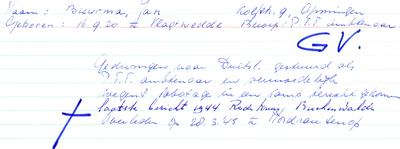 Naam: Buurma, Jan Kolfstr. 9, Groningen
Geboren: 16.9.20 te Vlagtwedde Beroep: P.T.T. ambtenaar
G.V.
Gedwongen naar Duitsl. gestuurd als
P.T.T. ambtenaar en vermoedelijk
wegens sabotage in een kamp terecht gekomen
laatste bericht 1944 Rode Kruis, Buchenwalde
Overleden op 28.3.45 te Nordhausen